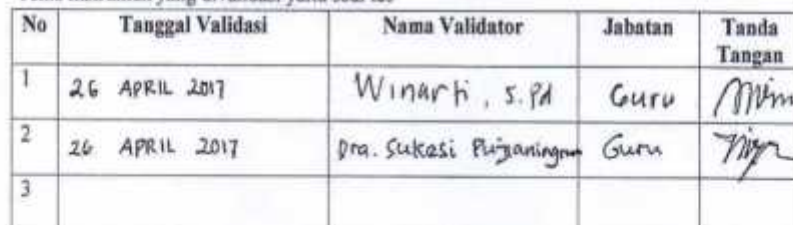 No Tanggal Validasi Nama Validator Jabatan Tanda Tangan
1 26 APRIL 2017 Winarti, S.Pd Guru
2 26 APRIL 2017 Dra. Sukasi Guru
3